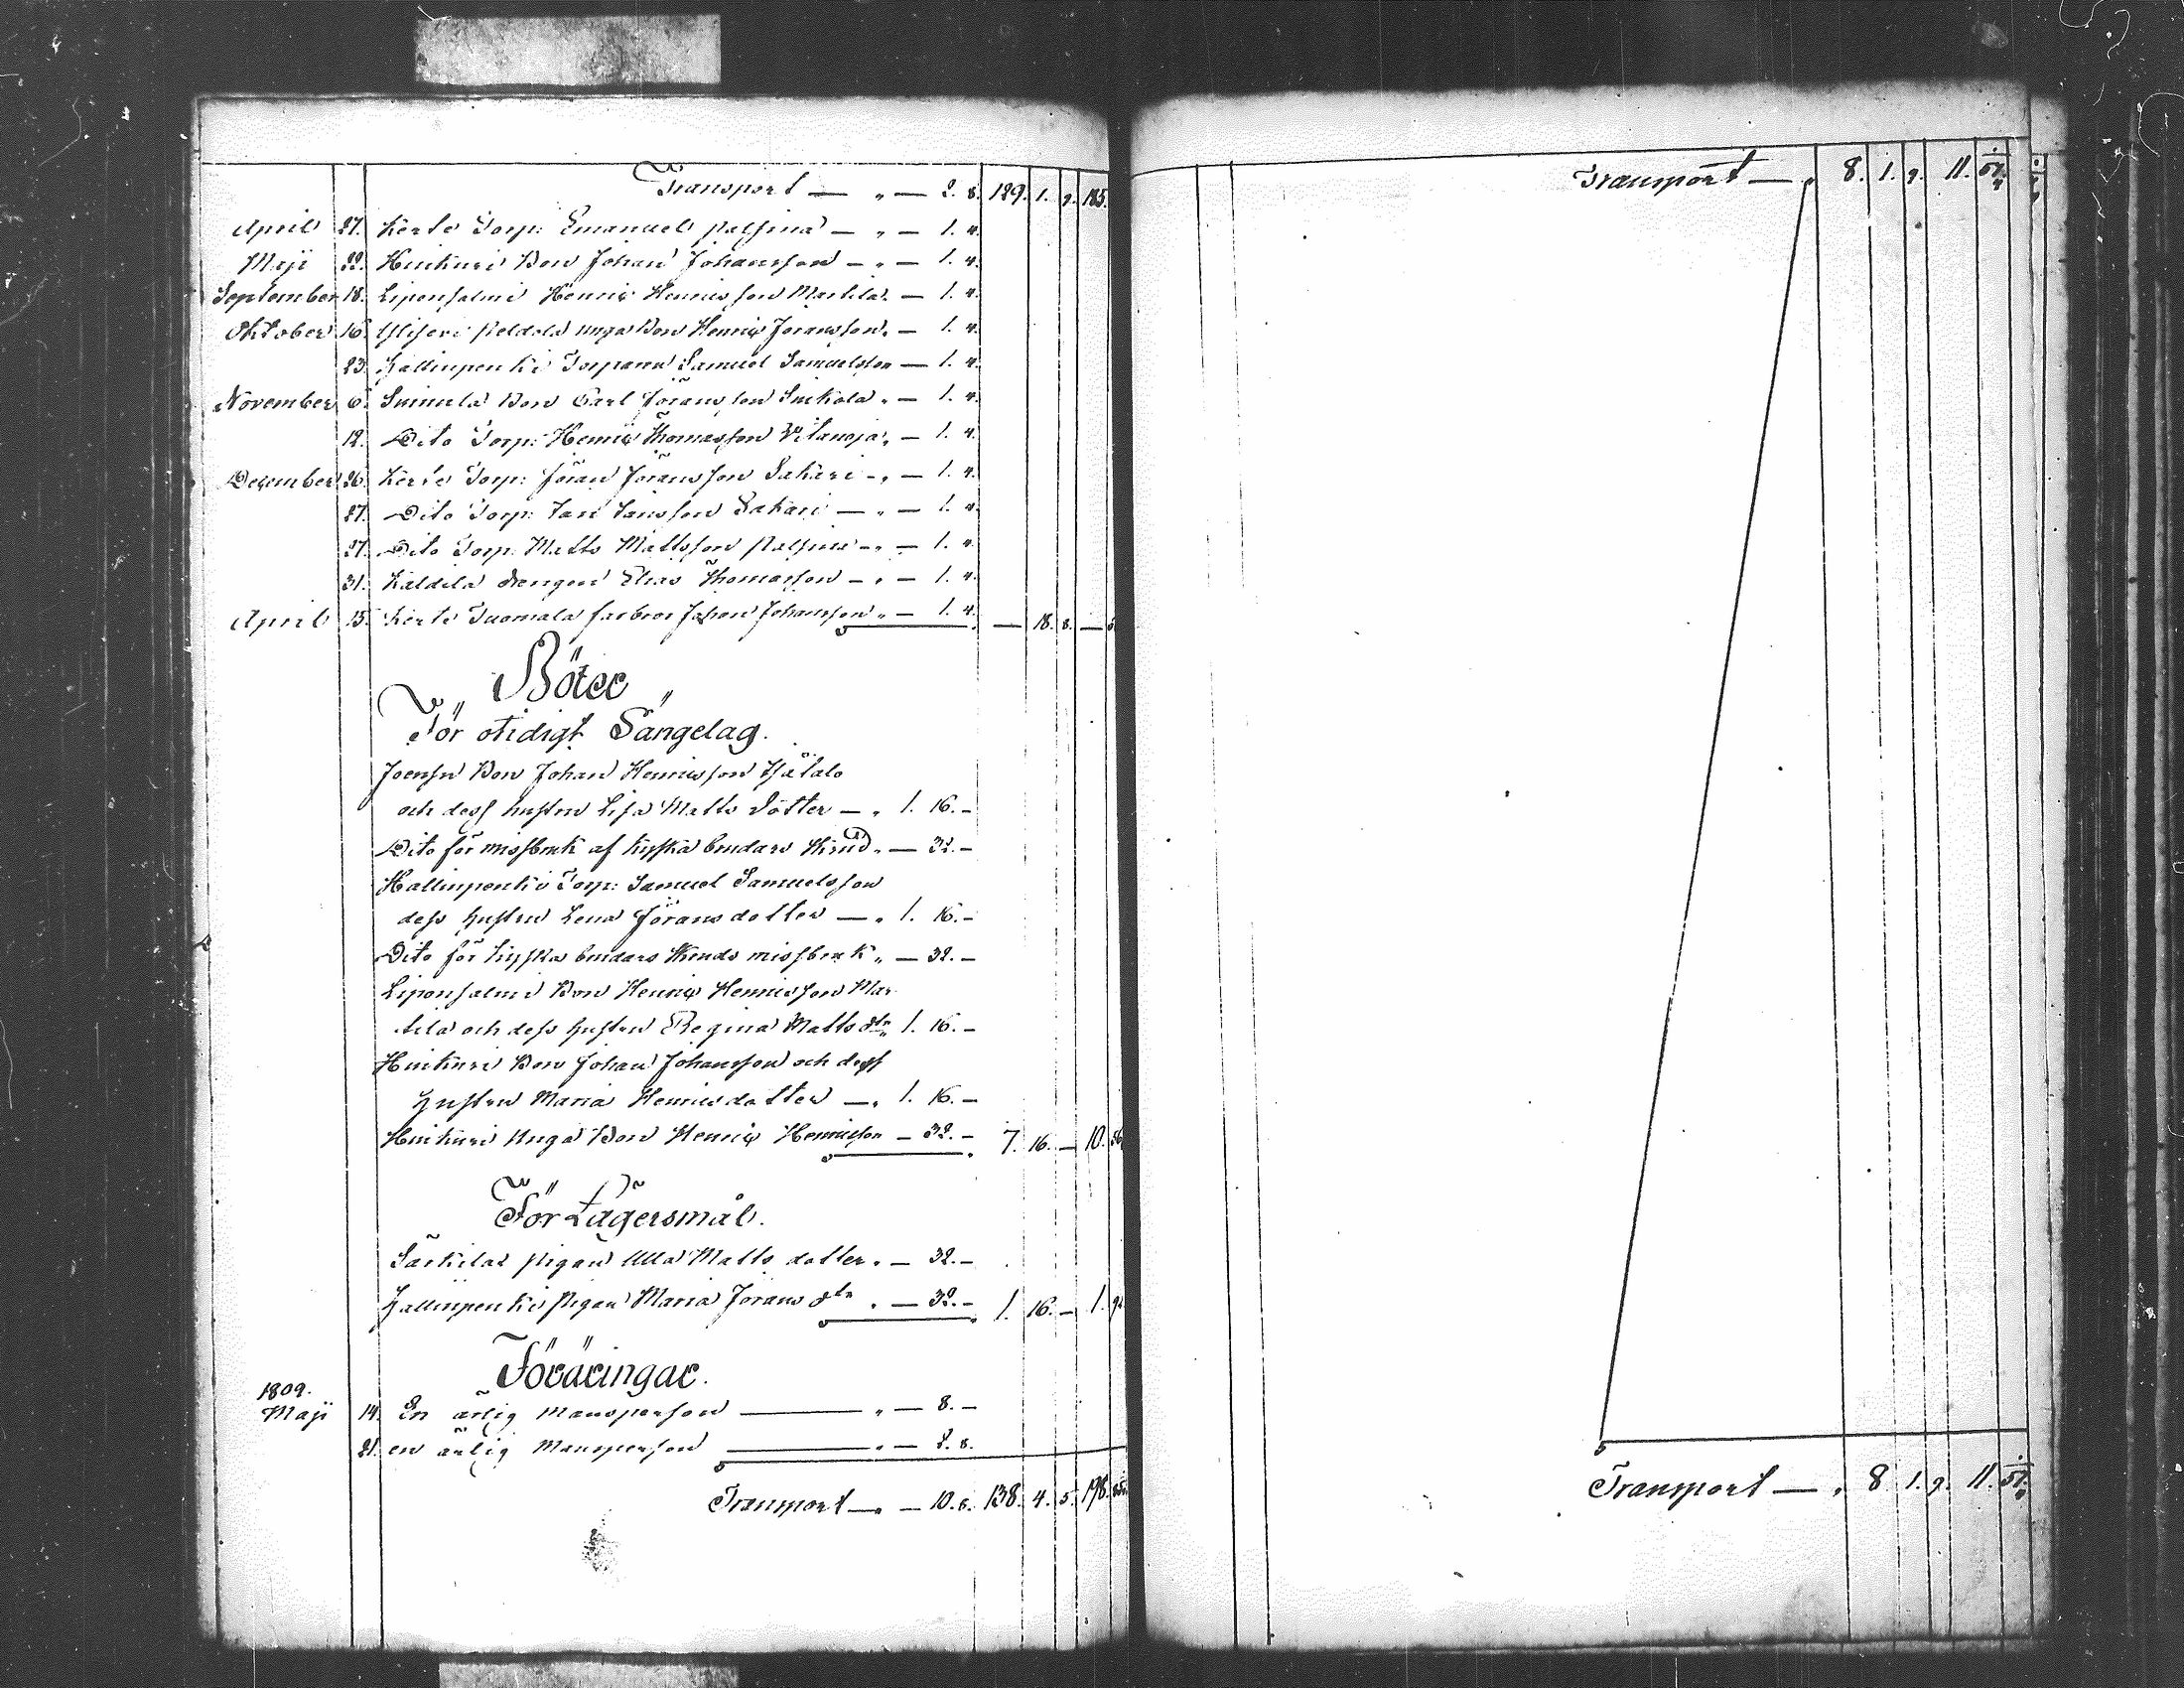 Transport — „ — 2. 8. 129. 1. 9. 185.
April 27. Kerte Torp: Emanuel — „ — 1. 4.
Maji 22. Huikuri Bon Johan Johansson — „ — 1. 4.
September 18. Liponsalmi Henric Henricsson Martila. — 1. 4.
Oktober 16. Peldola unga Bon Henric Jöransson. — 1. 4.
23. Hallinpenki Torparen Samuel Samuelsson — 1. 4.
November 6. Bon Carl Jöransson „ — 1. 4.
12. Dito Torp: Henric Thomasson „ — 1. 4.
December 26. Kerte Torp: Jöran Jöransson Sakari — „ — 1. 4.
27. Dito Torp: Jan Jansson Sakari — „ — 1. 4.
27. Dito Torp. Matts Mattsson — „ — 1. 4.
31. Kaldila drengen Elias Thomasson — „ — 1. 4.
April 15. Kerte Tuomala farbror Johan Johansson „ — 1. 4. — 18. 8. —
Böter
För otidigt Sängelag.
Bon Johan Henricsson
och dess hustru Lisa Matts dotter — „ 1. 16. —
Dito för missbruk af kyska brudars skrud „ — 32. —
Hallinpenki Torp: Samuel Samuelsson
dess hustru Lena Jöransdotter — „ 1. 16. —
Dito för kyska brudars skruds missbruk „ — 32. —
Liponsalmi Bon Henric Henricsson Mar-
tila och dess hustru Regina Matts dtr „ 1. 16. —
Huikuri Bon Johan Johansson och dess
hustru Maria Henricsdotter — „ 1. 16. —
Huikuri Unga Bon Henric Henricsson — 32. — 7. 16. — 10.
För Lägersmål.
Särkilax pigan Ulla Matts dotter „ — 32. —
Hallinpenki pigan Maria Jörans dtr „ — 32. — 1. 16. — 1.
Föräringar.
1809.
Maji 14. En ärlig Mansperson — „ — 8. —
21. en ärlig Mansperson — „ — 2. 8.
Transport — „ — 10. 8. 138. 4. 5. 198.
Transport — „ 8. 1. 9. 11. 57.
Transport — „ 8 1. 9. 11. 57.